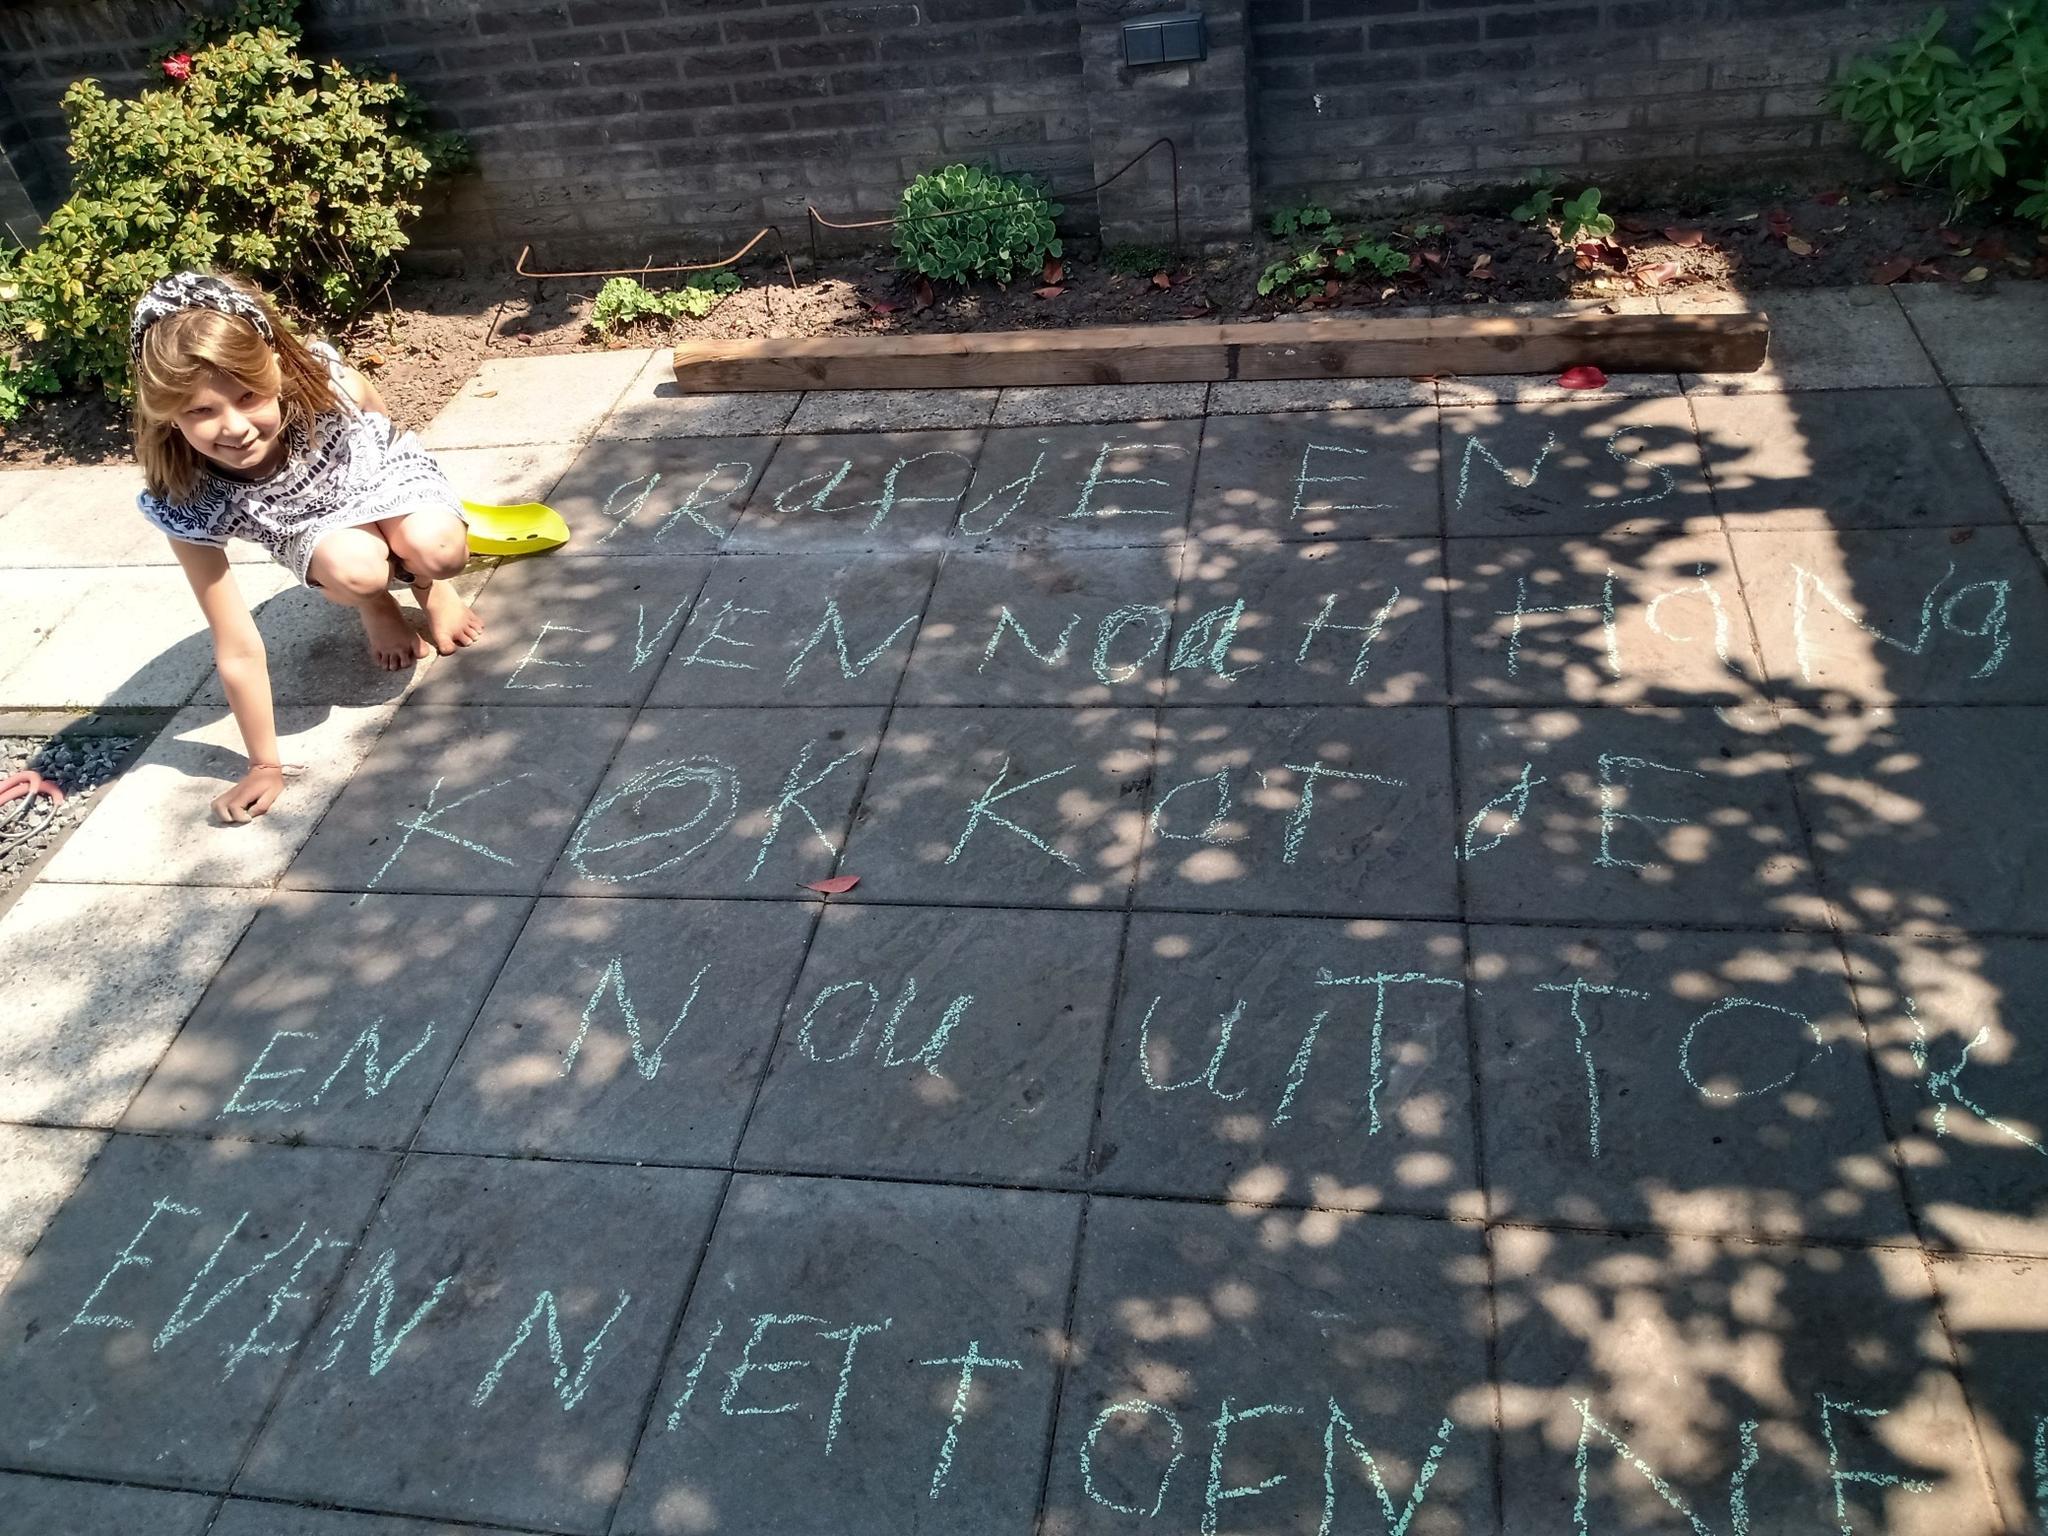 gRafdiE ENS
EVEN NOaH HaNg
KOK KaT dE
EN NOU UIT TOK
EVEN NIET TOEN NIE